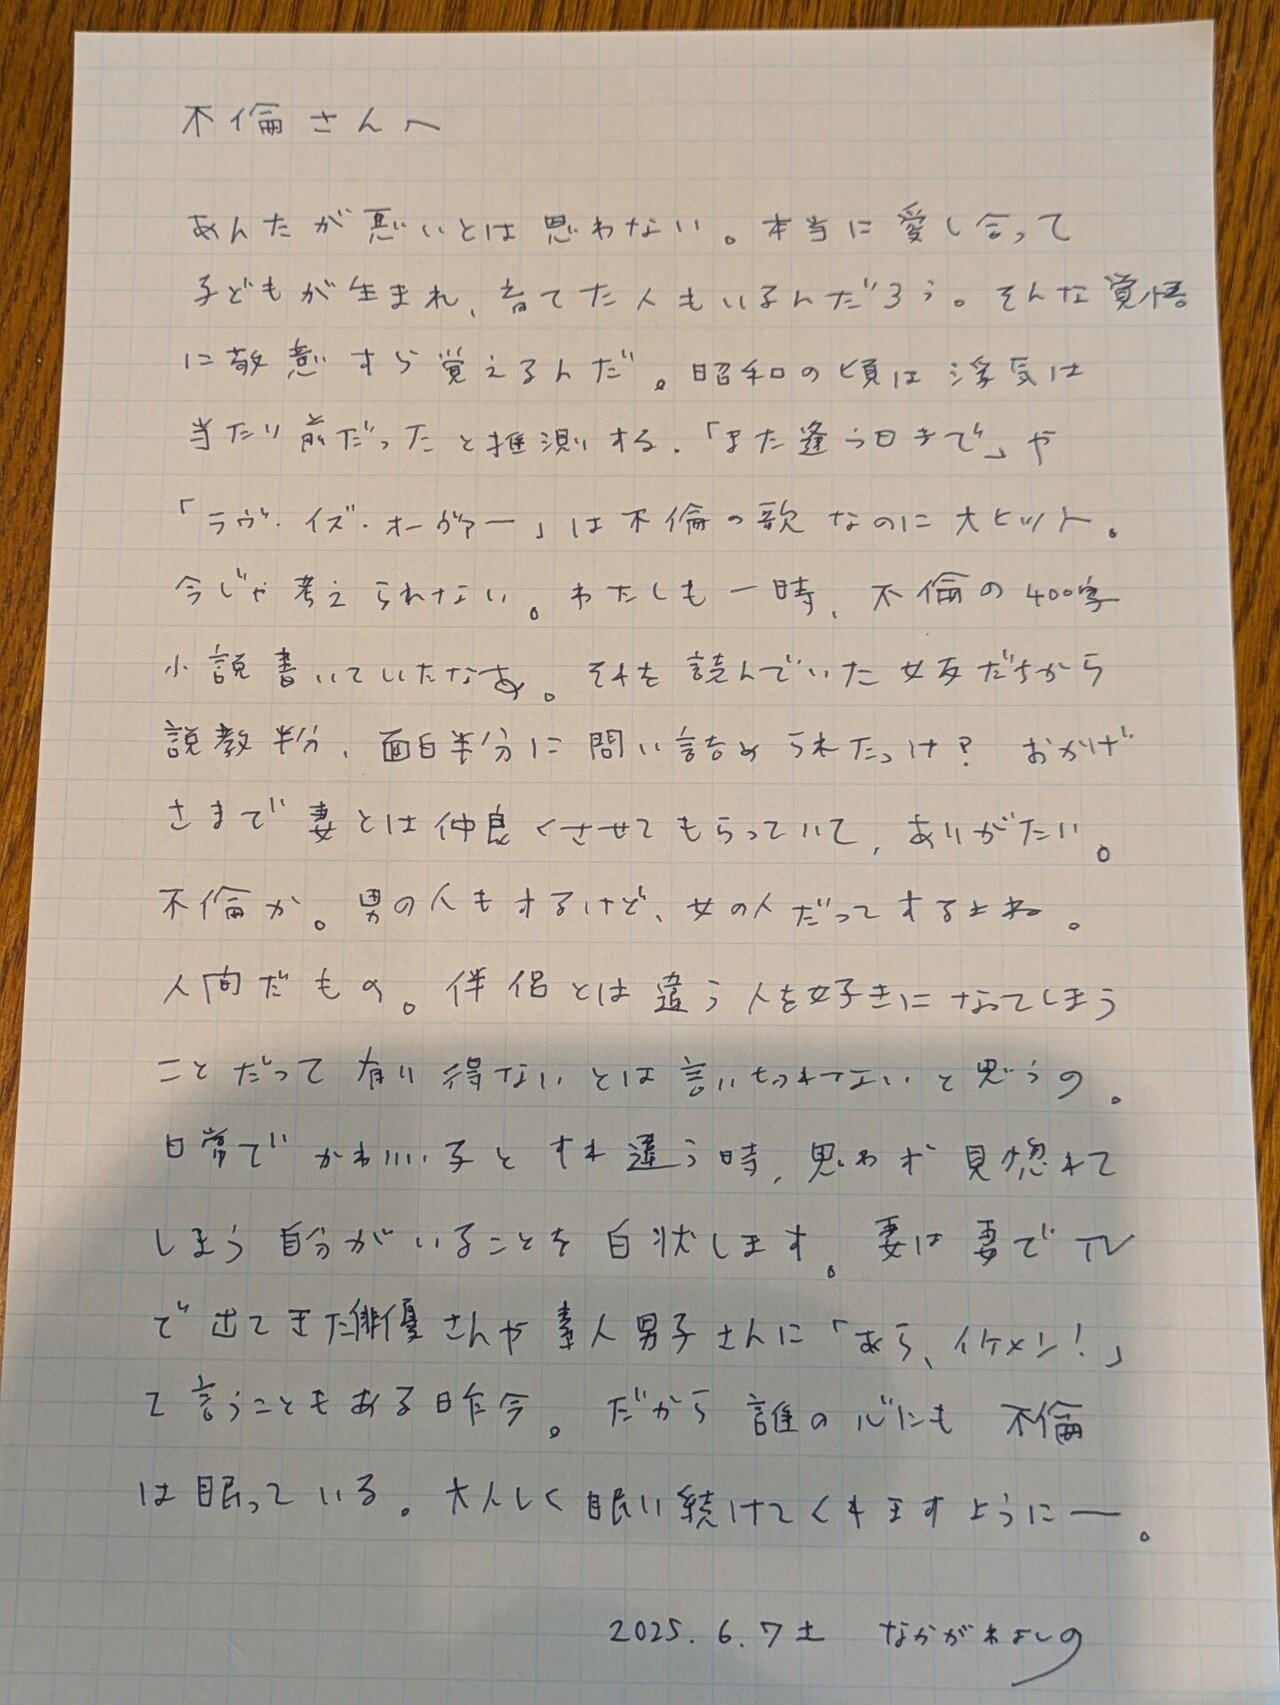 不倫さんへ
あんたが悪いとは思わない。本当に愛し合って
子どもが生まれ、育てた人もいるんだろう。そんな覚悟
に敬意すら覚えるんだ。昭和の頃は浮気は
当たり前だったと推測する。「また逢う日まで」や
「ラヴ・イズ・オーヴァー」は不倫の歌なのに大ヒット。
今じゃ考えられない。わたしも一時、不倫の400字
小説書いていたなあ。それを読んでいた女友だちから
説教半分、面白半分に問い詰められたっけ？おかげ
さまで妻とは仲良くさせてもらっていて、ありがたい。
不倫か。男の人もするけど、女の人だってするよね。
人間だもの。伴侶とは違う人を好きになってしまう
ことだって有り得ないとは言い切れないと思うの。
日常でかわいい子とすれ違う時、思わず見惚れて
しまう自分がいることを白状します。妻は妻でTV
で出てきた俳優さんや素人男子さんに「あら、イケメン！」
て言うこともある昨今。だから誰の心にも不倫
は眠っている。大人しく眠り続けてくれますように―。
2025.6.7土 なかがわよしの